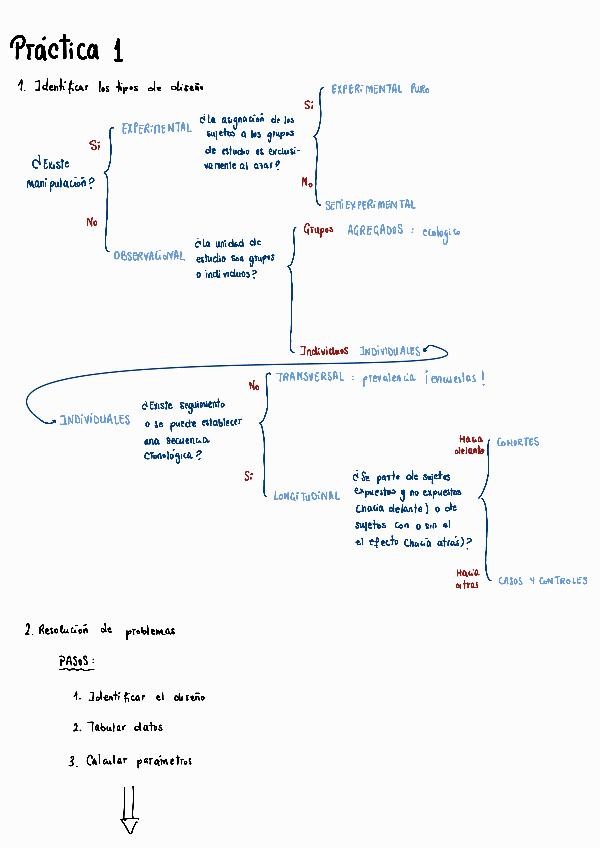 Práctica 1
1. Identificar los tipos de diseño
¿Existe
manipulación?
Si
EXPERIMENTAL
¿La asignación de los
sujetos a los grupos
de estudio es exclusi-
vamente al azar?
Si
EXPERIMENTAL PURO
No
SEMIEXPERIMENTAL
No
OBSERVACIONAL
¿La unidad de
estudio son grupos
o individuos?
Grupos AGREGADOS : ecológico
Individuos INDIVIDUALES
INDIVIDUALES
¿Existe seguimiento
o se puede establecer
una secuencia
cronológica?
No
TRANSVERSAL : prevalencia ¡encuestas!
Si
LONGITUDINAL
¿Se parte de sujetos
expuestos y no expuestos
(hacia delante) o de
sujetos con o sin el
el efecto (hacia atrás)?
Hacia
delante
COHORTES
Hacia
atras
CASOS Y CONTROLES
2. Resolución de problemas
PASOS:
1. Identificar el diseño
2. Tabular datos
3. Calcular parámetros